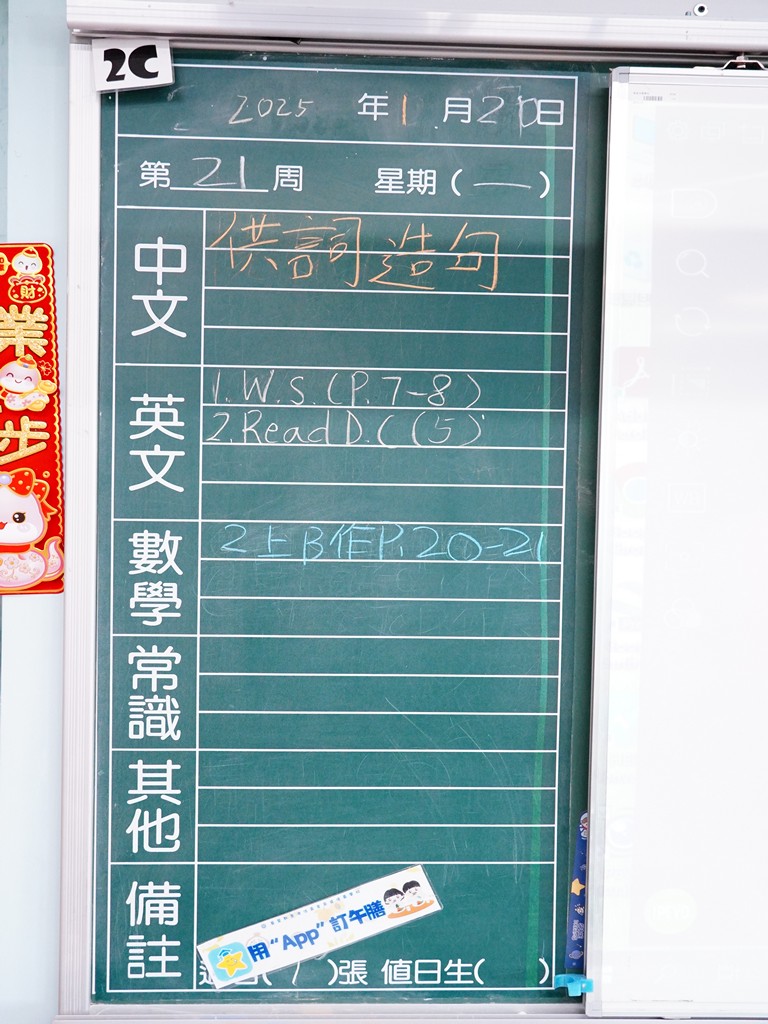 2C
2025 年 1 月 20 日
第 21 周 星期 ( 一 )
財
業
步
中文
供詞造句
英文
1. W.S. (P. 7-8)
2. Read D.C (5)
數學
2上B作P. 20-21
常識
其他
備註
用“App”訂午膳
( 1 )張 值日生( )